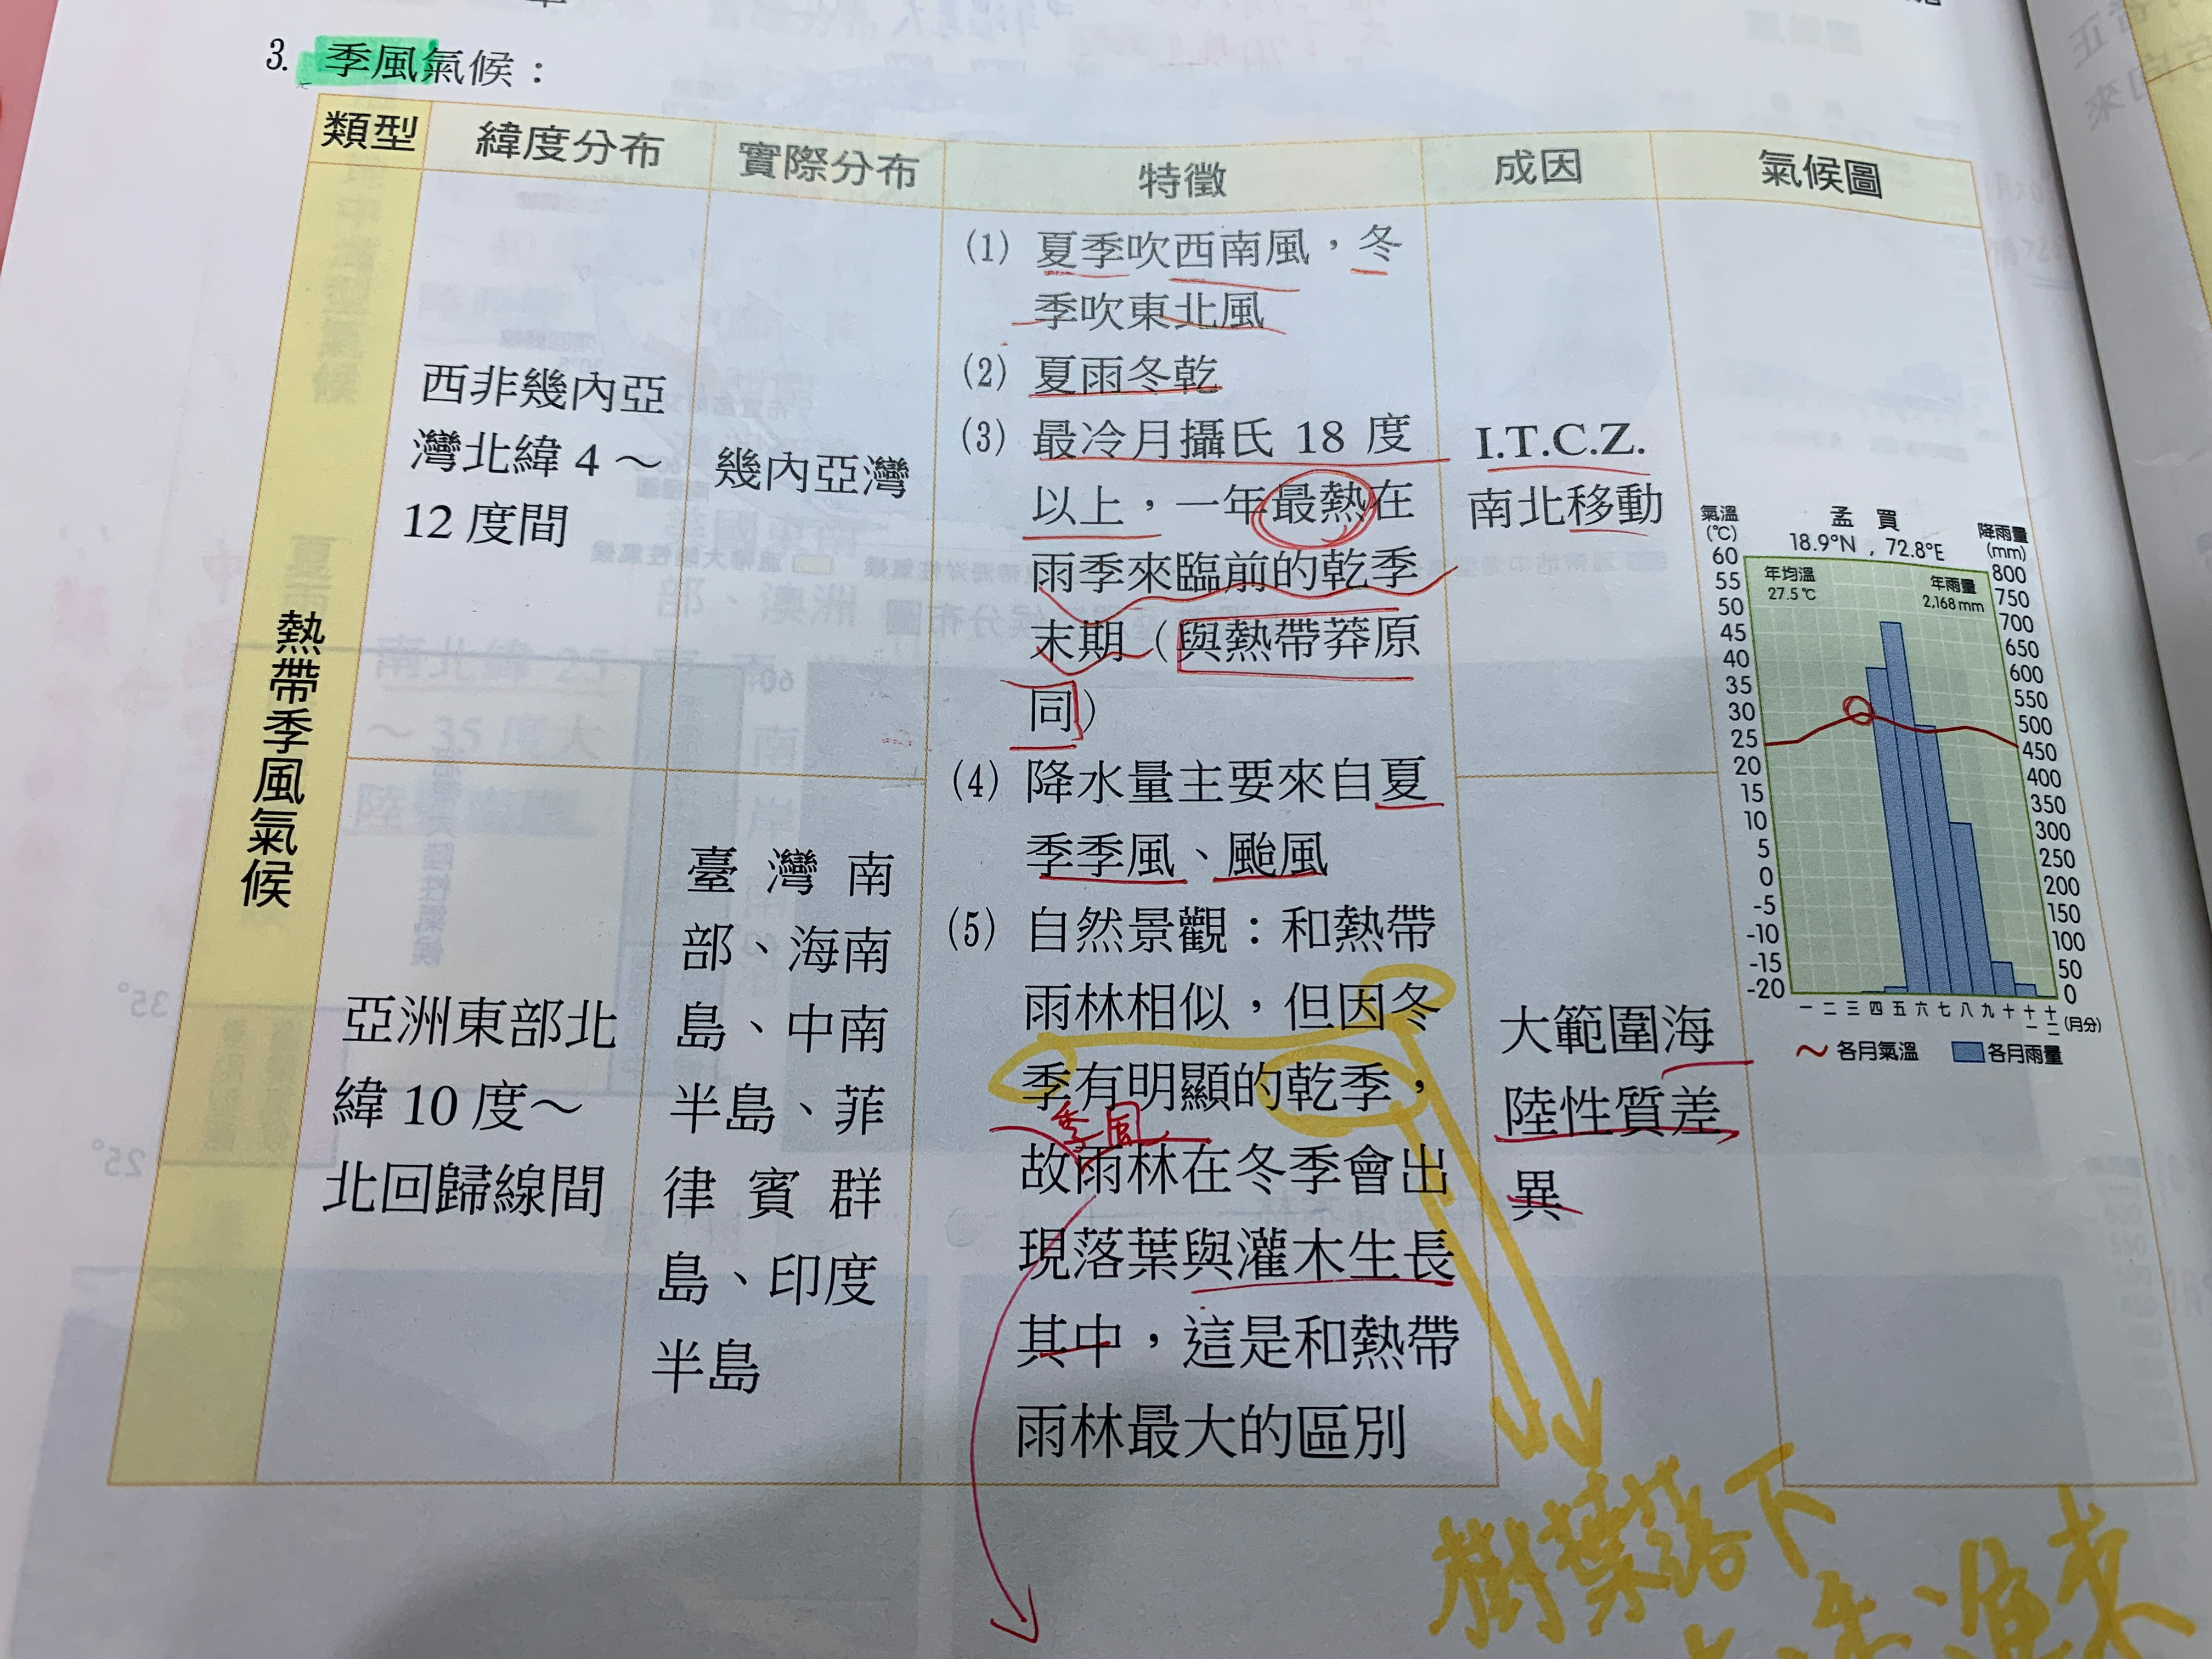 3. 季風氣候：
類型
緯度分布
實際分布
特徵
成因
氣候圖
熱帶季風氣候
西非幾內亞
灣北緯 4 ～
12 度間
幾內亞灣
(1) 夏季吹西南風，冬
季吹東北風
(2) 夏雨冬乾
(3) 最冷月攝氏 18 度
以上，一年最熱在
雨季來臨前的乾季
末期（與熱帶莽原
同）
(4) 降水量主要來自夏
季季風、颱風
(5) 自然景觀：和熱帶
雨林相似，但因冬
季有明顯的乾季，
季風
故雨林在冬季會出
現落葉與灌木生長
其中，這是和熱帶
雨林最大的區別
I.T.C.Z.
南北移動
亞洲東部北
緯 10 度～
北回歸線間
臺灣南
部、海南
島、中南
半島、菲
律賓群
島、印度
半島
大範圍海
陸性質差
異
氣溫
(℃)
孟買
18.9°N , 72.8°E
降雨量
(mm)
年均溫
27.5℃
年雨量
2,168 mm
60
55
50
45
40
35
30
25
20
15
10
5
0
-5
-10
-15
-20
800
750
700
650
600
550
500
450
400
350
300
250
200
150
100
50
0
一 二 三 四 五 六 七 八 九 十 十一 十二 (月分)
各月氣溫 各月雨量
樹葉落下
進來
35°
25°